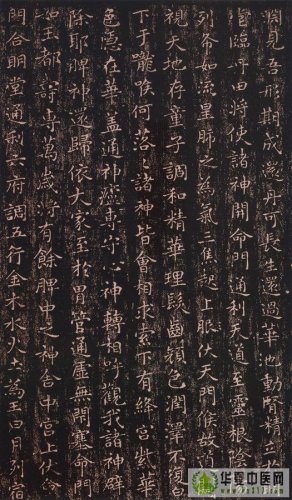 淵見吾形期成還丹可長生還過華池動腎精立於明
堂臨丹田將使諸神開命門通利天道至靈根陰陽
列布如流星肺之為氣三焦起上服伏天門候故道闚
視天地存童子調和精華理髮齒顏色潤澤不復白
下于嚨喉何落落諸神皆會相求索下有絳宮紫華
色隱在華蓋通神廬專守心神轉相呼觀我諸神辟
除耶脾神還歸依大家至於胃管通虛無閉塞命門
如玉都壽專萬歲將有餘脾中之神舍中宮上伏命
門合明堂通利六府調五行金木水火土為王日月列宿
华夏中医网